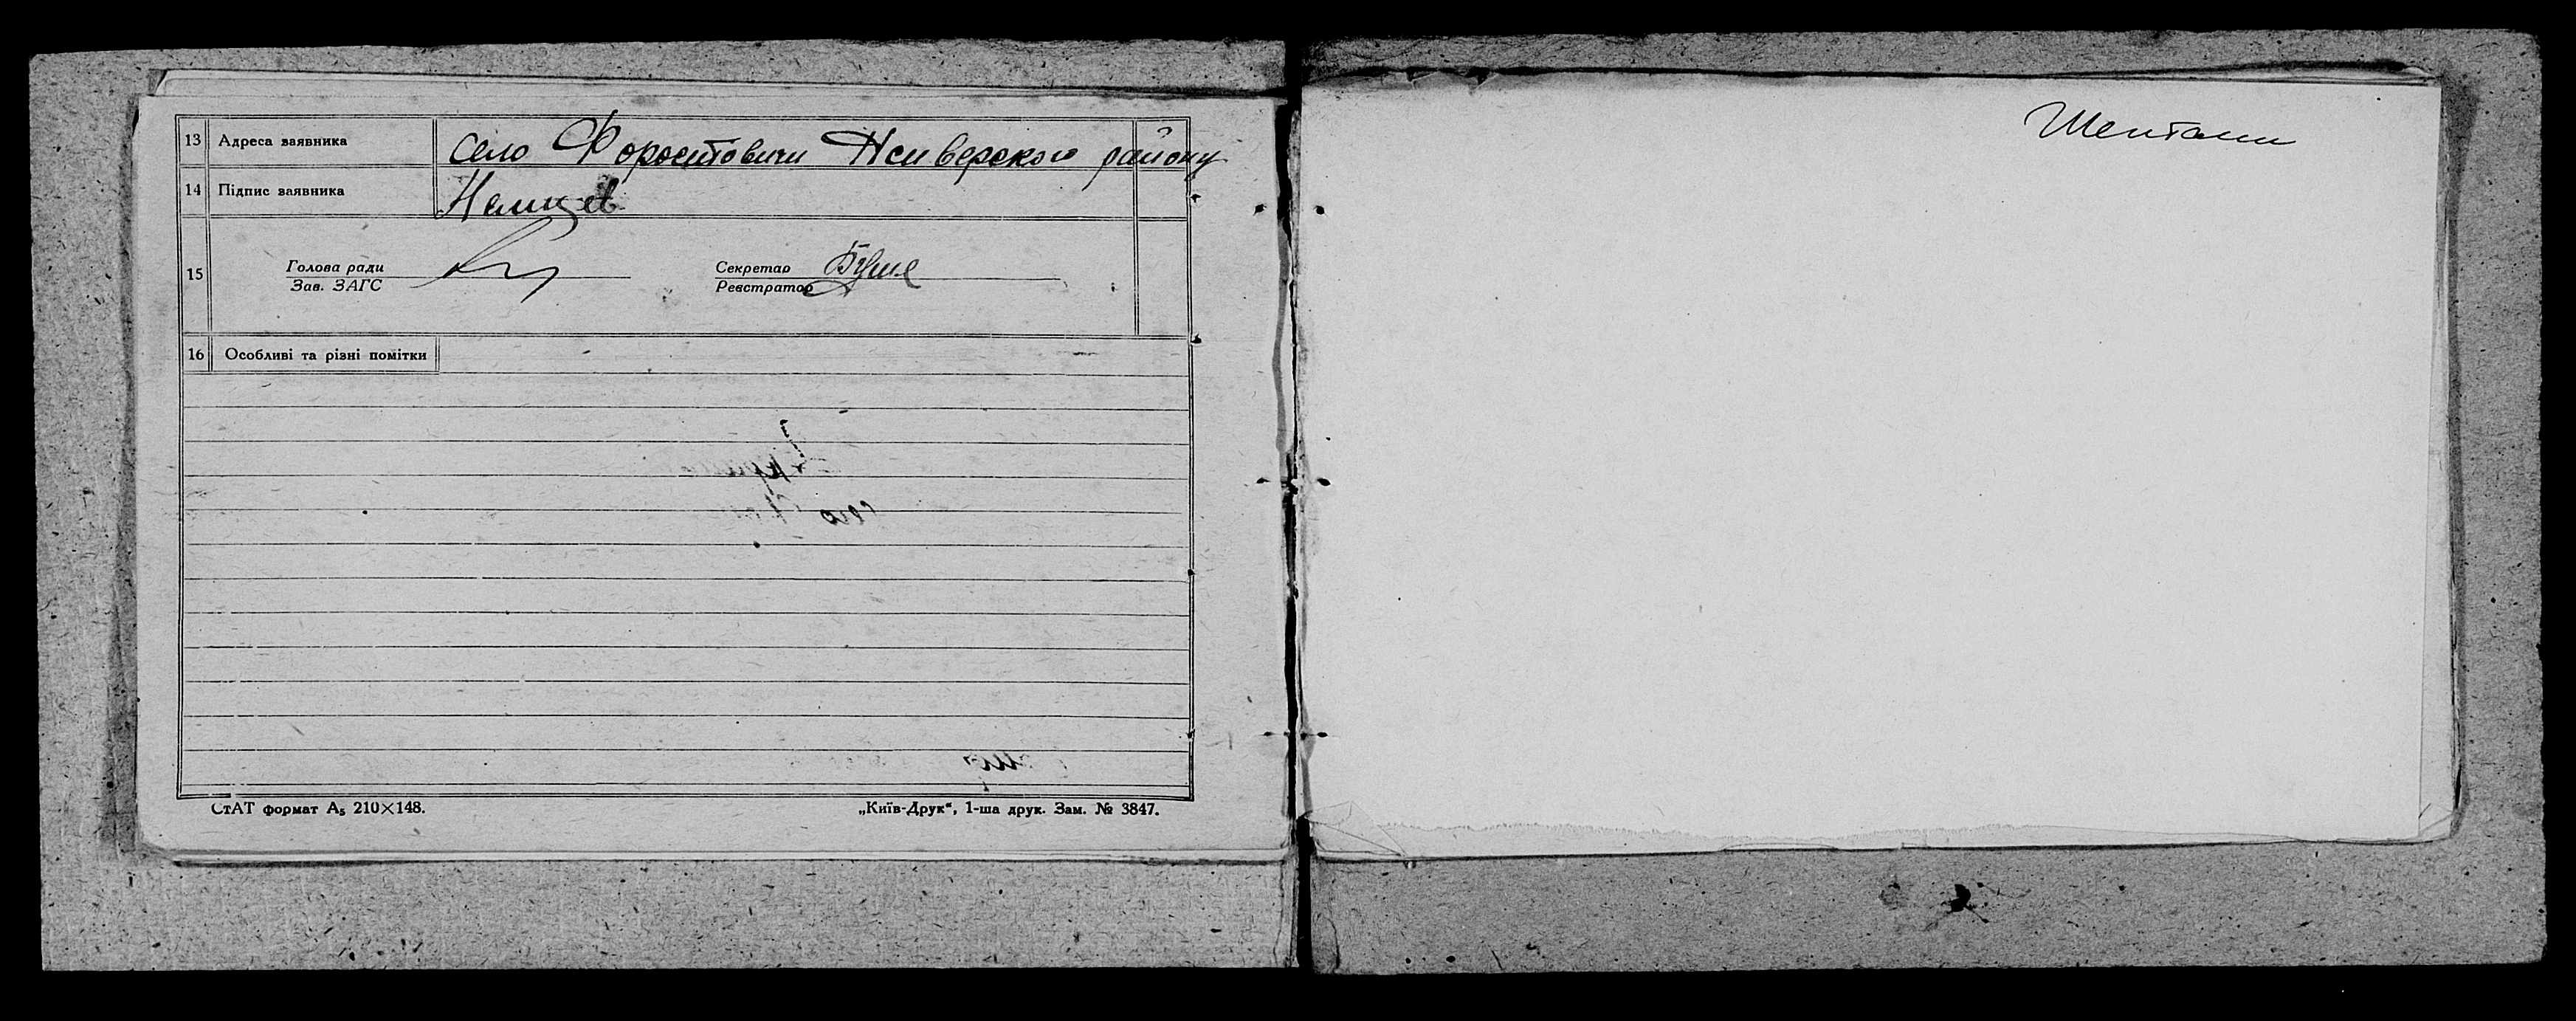 13 Адреса заявника село Форостовичи Нсиверского району
14 Підпис заявника
15 Голова ради Секретар
Зав. ЗАГС Реєстратор
16 Особливі та різні помітки
СтАТ формат А₅ 210×148. „Київ-Друк“, 1-ша друк. Зам. № 3847.
Шептаки